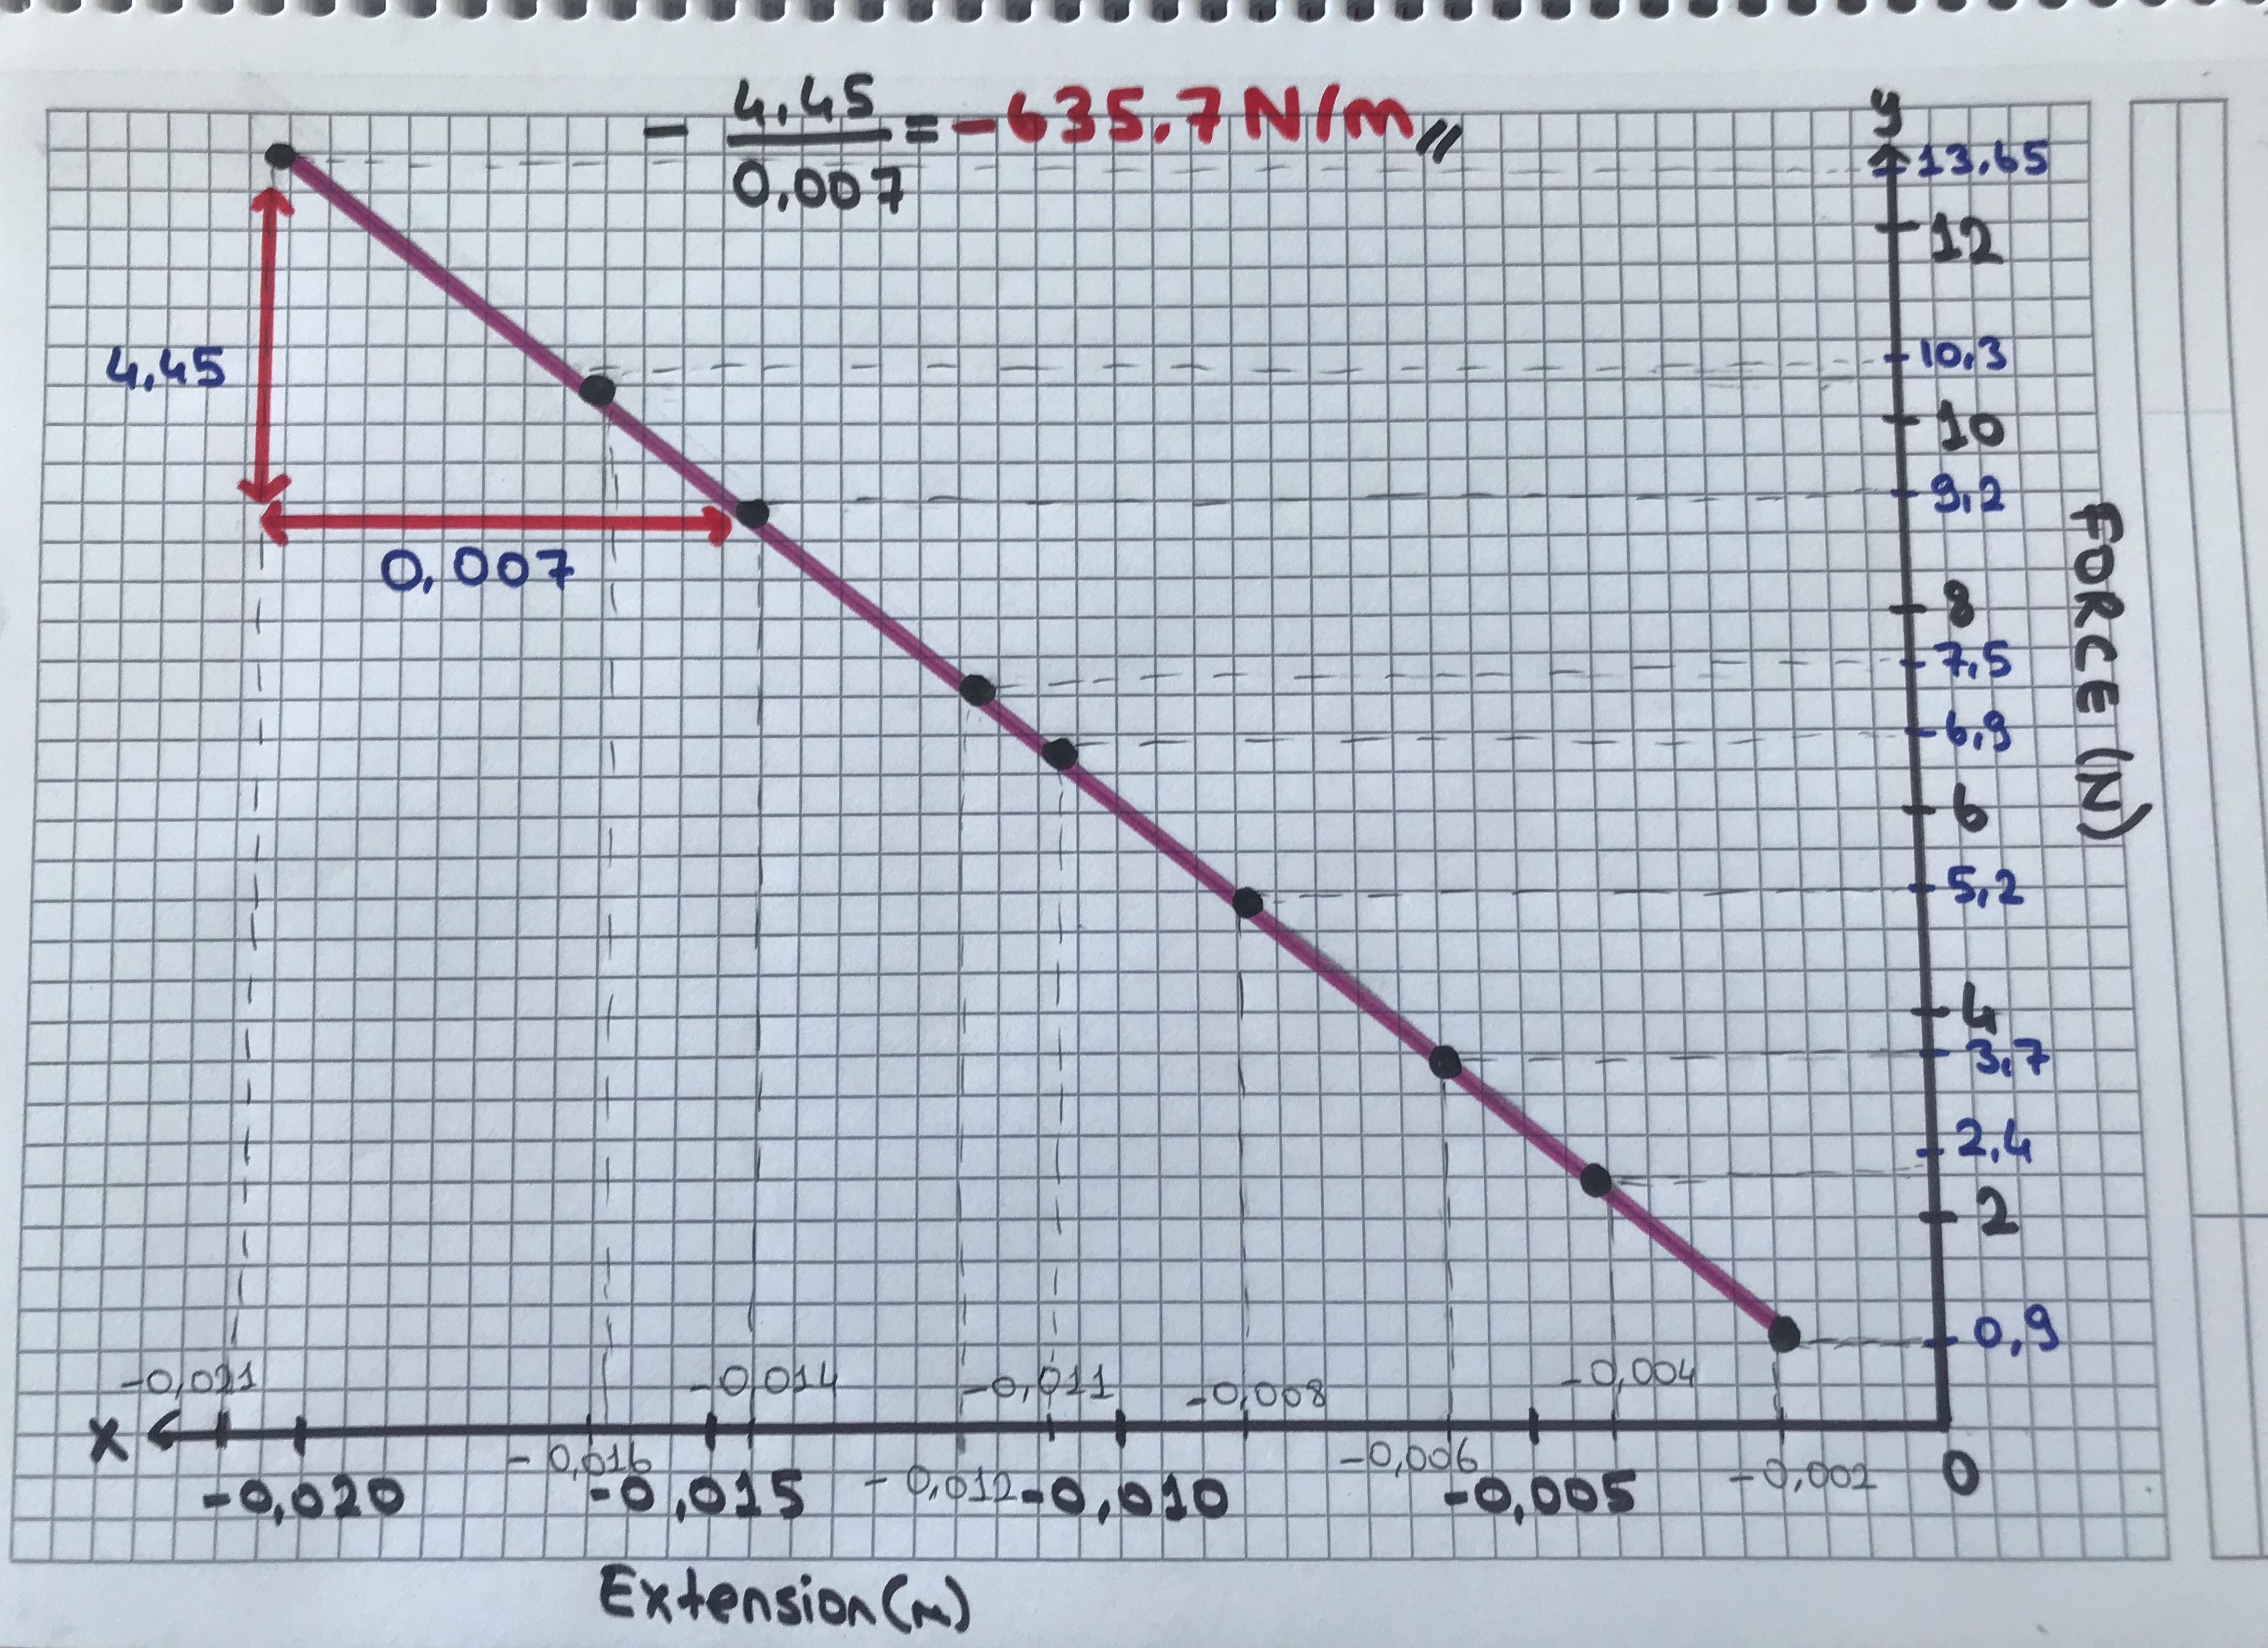 - 4.45 / 0.007 = -635.7 N/m //
y
13.65
12
10.3
10
9.2
8
7.5
6.9
6
5.2
4
3.7
2.4
2
0,9
FORCE (N)
4.45
0.007
-0,021
-0,014
-0,011
-0,008
-0,004
X
-0,016
-0,012
-0,006
-0,002
0
-0,020
-0,015
-0,010
-0,005
Extension (m)